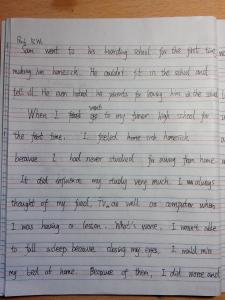 Sam went to his boarding school for the first time
making him homesick. He couldn't fit in the school and
felt ill. He even hated his parents for leaving him in the school
When I went to my junior high school for
the first time, I feeled homesick
because I had never studied far away from home
It did influence my study very much. I always
thought of my food, TV as well as computer when
I was having a lesson. What's worse, I wasn't able
to fall asleep because closing my eyes, I would miss
my bed at home. Because of them, I did worse and